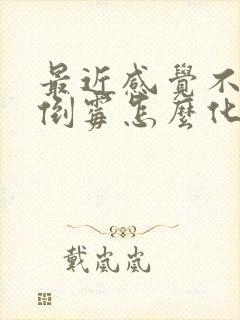 最近感覺不
倒霉怎麼化
戴嵐嵐